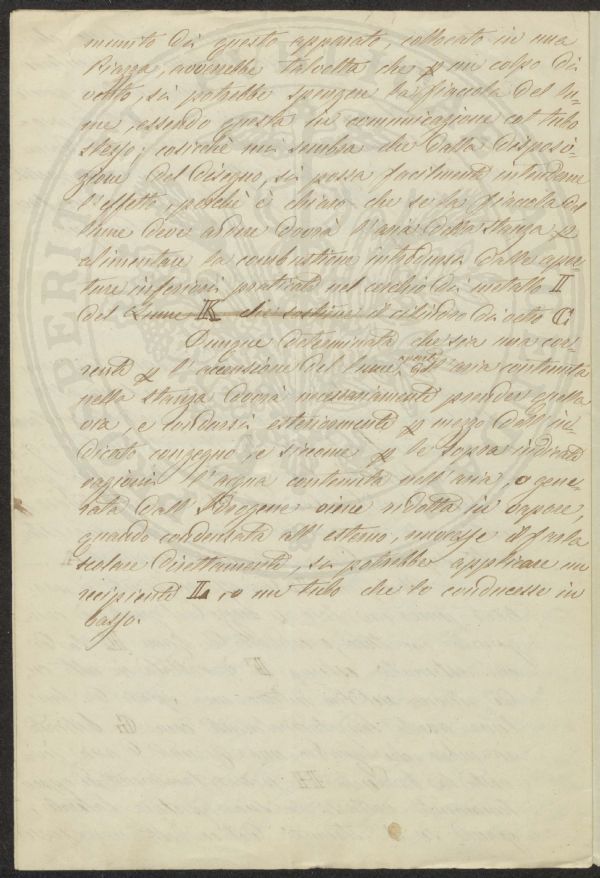 munito di questo apparato, collocato in una
Piazza, avverrebbe talvolta che p un colpo di
vento, si potrebbe spengere la fiaccola del lu-
me, essendo questa in comunicazione col tubo
stesso; cosicchè mi sembra che dalla disposi-
zione del disegno, si possa facilmente intendere
l'effetto, poichè è chiaro che se la fiaccola del
lume deve ardere dovrà l'aria della stanza p
alimentare la combustione introdursi dalle aper-
ture inferiori praticate nel cerchio di metallo I
del Lume K che sostiene il cilindro di vetro C.
Dunque determinata che sia una cor-
rente p l'accensione del lume, dell'aria contenuta
nella stanza dovrà necessariamente prender quella
via, e condursi esteriormente p mezzo dell'in-
dicato congegno, e siccome p le sopra indicate
ragioni l'acqua contenuta nell'aria, o gene-
rata dall'Idrogene viene ridotta in vapore,
quando condensata all'esterno, nuocesse il farla
scolare direttamente, si potrebbe applicare un
recipiente L, o un tubo che lo conducesse in
basso.